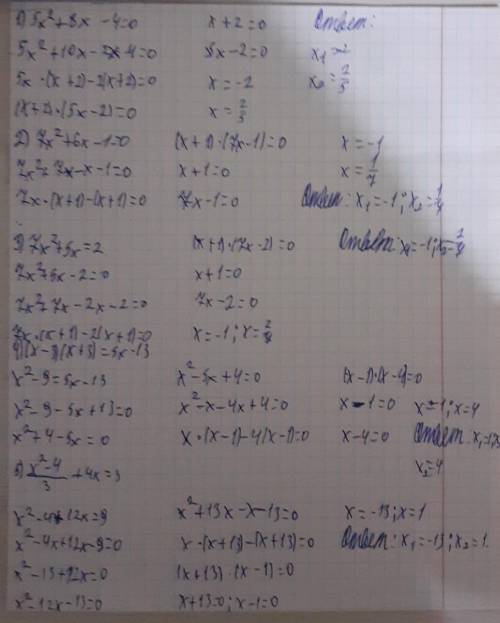 1) 5x²+8x-4=0
5x²+10x-2x-4=0
5x·(x+2)-2(x+2)=0
(x+2)·(5x-2)=0
x+2=0
5x-2=0
x=-2
x=2/5
Ответ:
x₁=-2
x₂=2/5
2) 7x²+6x-1=0
7x²+7x-x-1=0
7x·(x+1)-(x+1)=0
(x+1)·(7x-1)=0
x+1=0
7x-1=0
x=-1
x=1/7
Ответ: x₁=-1; x₂=1/7
3) 7x²+5x=2
7x²+5x-2=0
7x²+7x-2x-2=0
7x·(x+1)-2(x+1)=0
(x+1)·(7x-2)=0
x+1=0
7x-2=0
x=-1; x=2/7
Ответ: x₁=-1; x₂=2/7
4) (x-3)(x+3)=5x-13
x²-9=5x-13
x²-9-5x+13=0
x²+4-5x=0
x²-5x+4=0
x²-x-4x+4=0
x·(x-1)-4(x-1)=0
(x-1)·(x-4)=0
x-1=0
x-4=0
x=1; x=4
Ответ: x₁=1;
x₂=4
5) x²-4/3+4x=3
x²-4+12x=9
x²-4x+12x-9=0
x²-13+12x=0
x²-12x-13=0
x²+13x-x-13=0
x·(x+13)-(x+13)=0
(x+13)·(x-1)=0
x+13=0; x-1=0
x=-13; x=1
Ответ: x₁=-13; x₂=1.